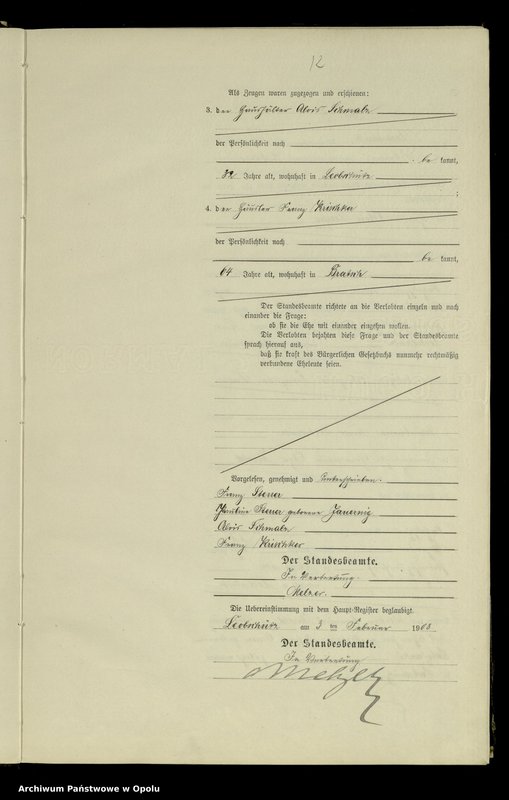 12
Als Zeugen waren zugezogen und erschienen:
3. der Haushälter Alois Schmalz
der Persönlichkeit nach
be kannt,
32 Jahre alt, wohnhaft in Leobschütz
;
4. der Häusler Franz Krischker
der Persönlichkeit nach
be kannt,
64 Jahre alt, wohnhaft in Bratsch
Der Standesbeamte richtete an die Verlobten einzeln und nach
einander die Frage:
ob sie die Ehe mit einander eingehen wollen.
Die Verlobten bejahten diese Frage und der Standesbeamte
sprach hierauf aus,
daß sie kraft des Bürgerlichen Gesetzbuchs nunmehr rechtmäßig
verbundene Eheleute seien.
Vorgelesen, genehmigt und unterschrieben.
Franz Steuer
Pauline Steuer geborene Jauernig
Alois Schmalz
Franz Krischker
Der Standesbeamte.
In Vertretung.
Melzer.
Die Uebereinstimmung mit dem Haupt-Register beglaubigt.
Leobschütz am 3 ten Februar 1903.
Der Standesbeamte.
In Vertretung
Melzer
Archiwum Państwowe w Opolu